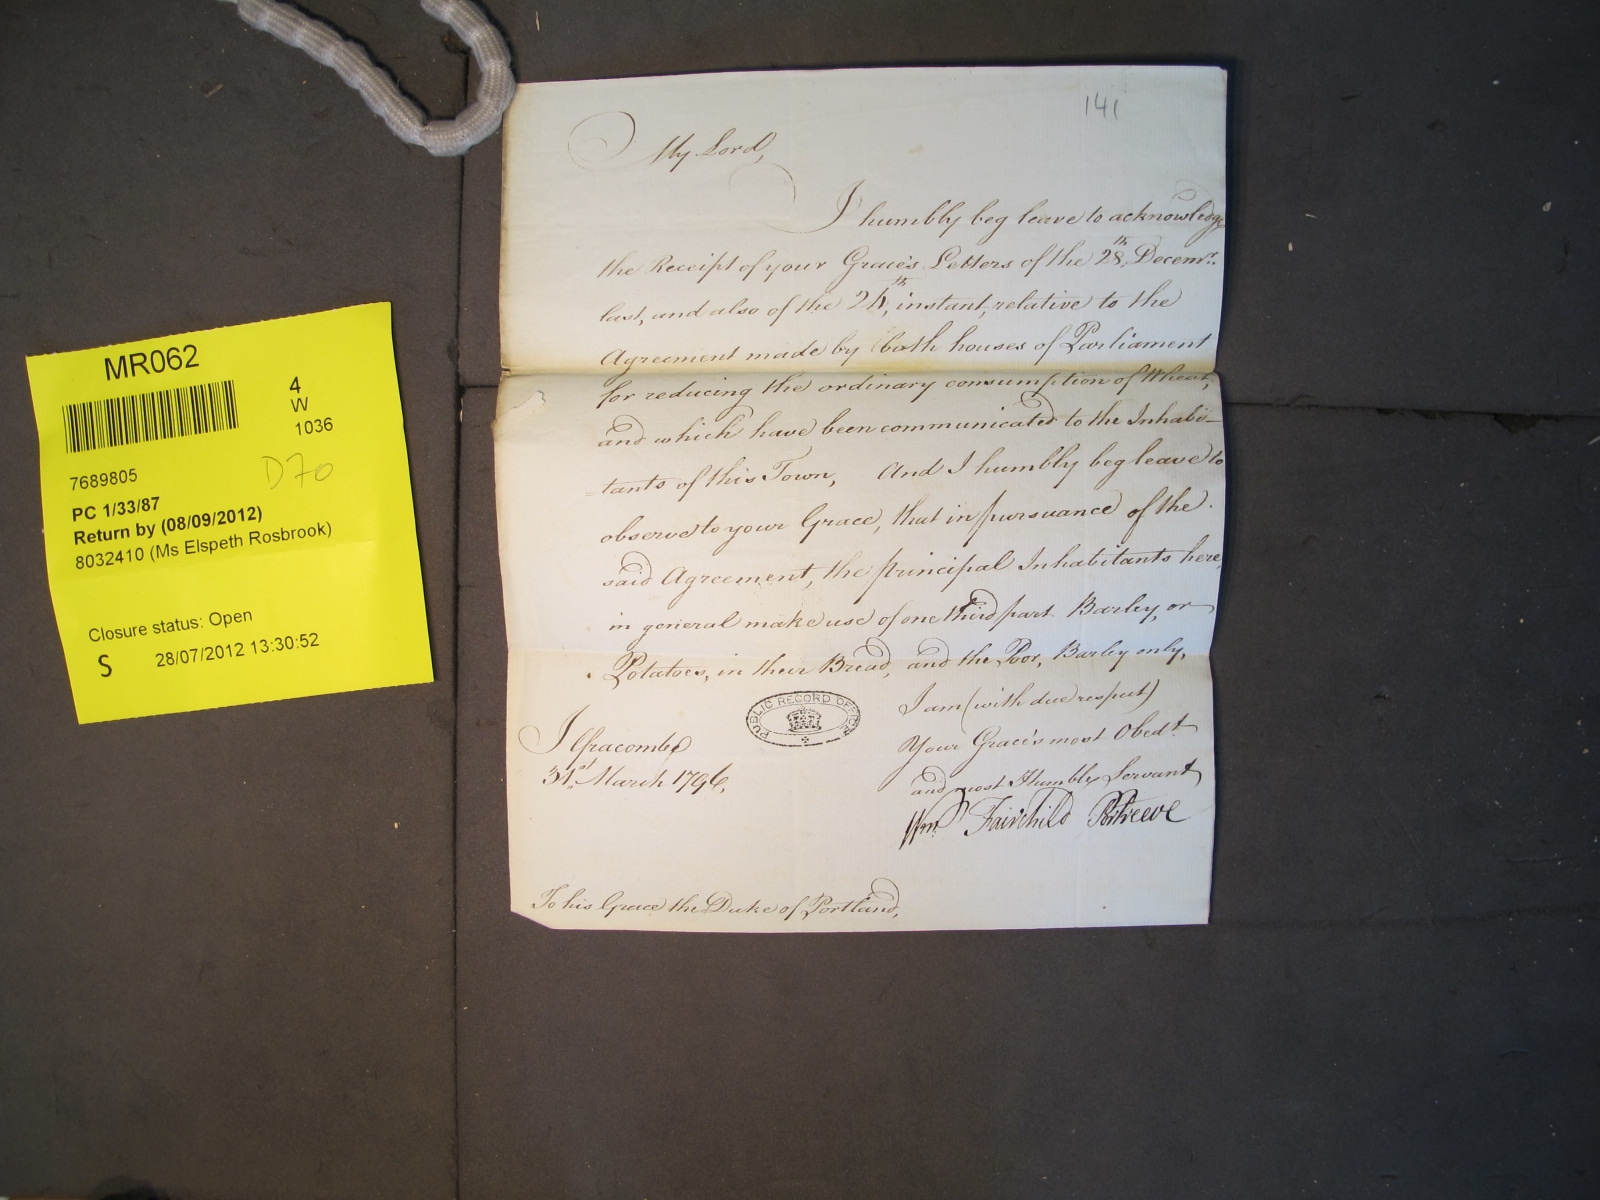 MR062
4
W
1036
7689805
D70
PC 1/33/87
Return by (08/09/2012)
8032410 (Ms Elspeth Rosbrook)
Closure status: Open
S
28/07/2012 13:30:52
141
My Lord,
I humbly beg leave to acknowledge
the Receipt of your Grace's Letters of the 28th, Decemr.
last, and also of the 24th, instant, relative to the
Agreement made by both houses of Parliament
for reducing the ordinary consumption of Wheat,
and which have been communicated to the Inhabi-
-tants of this Town, And I humbly beg leave to
observe to your Grace, that in pursuance of the
said Agreement, the principal Inhabitants here,
in general make use of one third part Barley, or
Potatoes, in their Bread, and the Poor, Barley only,
I am (with due respect)
Your Grace's most Obedt
and most Humble Servant
Wm. Fairchild Portreeve
PUBLIC RECORD OFFICE
Ilfracombe
31st, March 1796,
To his Grace the Duke of Portland,